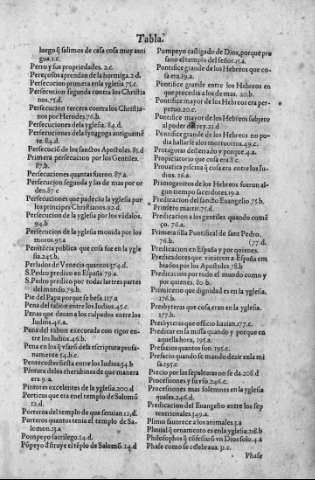 Tabla.
luego q̃ salimos de casa cosa muy anti
gua.1.c.
Perro y sus propriedades. 2.c.
Pereçosos aprendan de la hormiga.2.d.
Persecucion primera en la yglesia 75.c.
Persecucion segunda contra los Christia
nos.75.d.
Persecucion tercera contra los Christia-
nos por Herodes.76.b.
Persecuciones dela yglesia. 84.d.
Persecuciones de la synagoga antiguamẽ
te. 84.d.
Persecuciõ de los sanctos Apostoles. 85.d
Primera persecucion por los Gentiles.
87.b.
Persecuciones quantas fueron. 87.a.
Persecucion segunda y las de mas por or
den.87.c
Persecuciones que padecio la yglesia pur
los principes Christianos.92.d.
Persecucion de la yglesia por los vãdalos.
94.b
Persecucion de la yglesia mouida por los
moros.95.a
Penitẽcia publica que cosa fue en la ygle
sia.245.b
Perlados de Venecia quantos
S.Pedro predico en España 79.a.
S.Pedro predico por todas las tres partes
del mundo.79.b.
Pie del Papa porque se besa.117.a
Pena del talion entre los Iudios.45.c.
Penas que dauan a los culpados entre los
Iudios.46.a.
Pena del talion executada con rigor en-
tre los Iudios.46.b.
Pena en la q̃ vsarõ dela escriptura profa-
namente 54.b.c
Pentecostes fiesta entre los Iudios.54.b
Pintura delos cherubines de que manera
era 9.a.
Pintores excelentes de la yglesia.200.d
Porticos que era en el templo de Salomõ
12.d
Porteros del templo de que seruian 12.d.
Porteros quantos tenia el templo de Sa-
lomon.13.a
Pompeyo sacrilego.14.d.
Põpeyo destruye el tẽplo de Salomõ. 14.d
Pompeyo castigado de Dios, porque pro
fano el templo del señor.15.a.
Pontifice grande de los Hebreos que co-
sa era.19.a.
Pontifice grande entre los Hebreos en
que precedia a los de mas. 20.b.
Pontifice mayor de los Hebreos era per-
petuo.20.c.
Pontifice mayor de los Hebreos subjeto
al poder del rey.21.d
Pontifice grande de los Hebreos no po-
dia hallarse a los mortuorios.49.c.
Protagoras desterrado y porque.4.a.
Propiciatorio que cosa era 8.c.
Prouatica piscina q̃ cosa era entre los Iu-
dios. 16.a.
Primogenitos de los Hebreos fueron al-
gun tiempo sacerdotes.19.a.
Predicacion del sancto Euangelio 75.b.
Prisucto martir.75.d.
Predicacion a los gentiles quando comẽ
ço. 76.a.
Primera silla Pontifical de sant Pedro.
76.b. (77.d.
Predicacion en España y por quienes.
Predicadores que vinieron a España em
biados por los Apostoles.78.b
Predicacion por todo el mundo como y
por quienes. 80. b.
Primiterio que dignidad es en la yglesia.
176.b.
Presbyteros que cosa eran en la yglesia.
177.b.
Presbyteros que officio hazian.177.c.
Predicar en la missa quando y porque en
aquella hora, 195.a.
Prefacios quantos son 195.c.
Prefacio quando se mando dezir en la mi
sa 195.c.
Precio por las sepulturas no se da 208.d
Processiones y su vso 246.c.
Processiones mas solemnes en la yglesia
quales.246.d.
Predicacion del Euangelio entre los sep
tentrionales.349.a.
Plinio fauorece a los animales.3.a
Pluuial q̃ ornamento es en la yglesia.218.b
Philosophos q̃ cõfessarõ vn Dios solo.4.a
Phase como se celebraua.51.c.
Phase